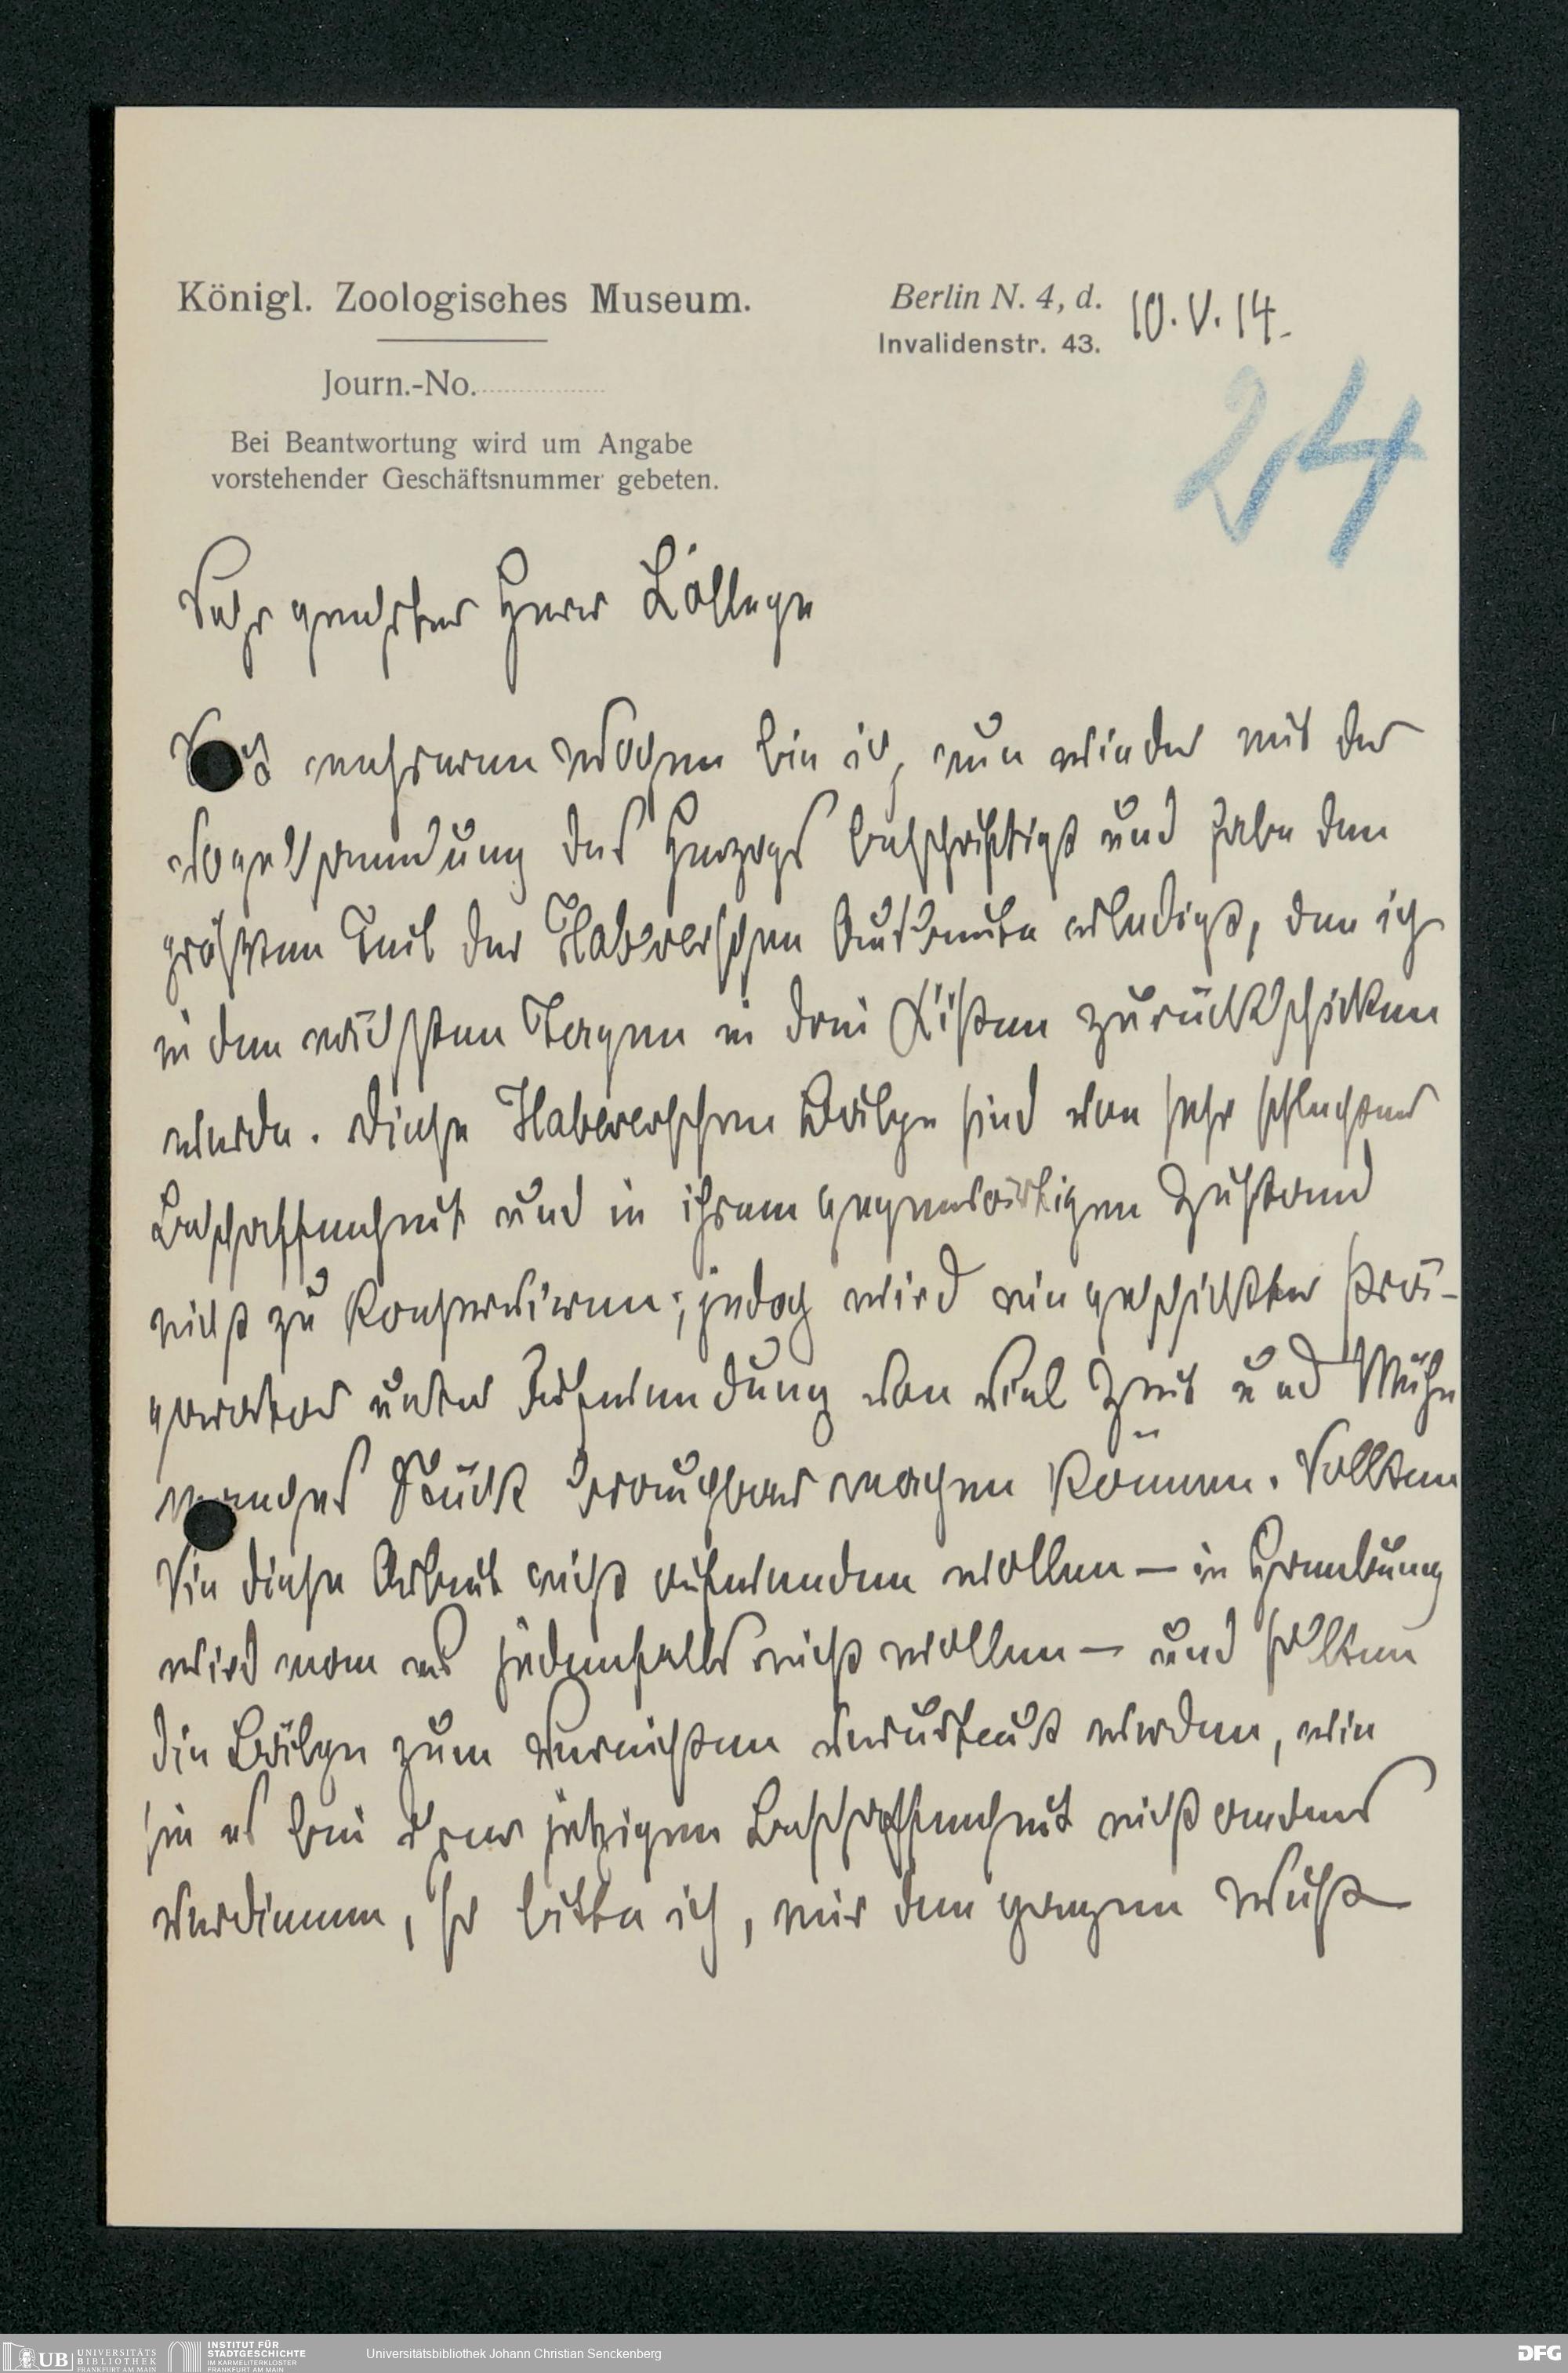 Königl. Zoologisches Museum.
Berlin N. 4, d. 10.V.14.
Invalidenstr. 43.
Journ.-No.
Bei Beantwortung wird um Angabe
vorstehender Geschäftsnummer gebeten.
24
Sehr geehrter Herr Kollege
mehreren Wochen bin ich nun wieder mit der
Vogelsendung des Herzogs beschäftigt und habe den
größten Teil der Habererschen Ausbeute erledigt, den ich
in den nächsten Tagen in drei Kisten zurückschicken
werde. Diese Habererschen Bälge sind von sehr schlechter
Beschaffenheit und in ihrem gegenwärtigen Zustand
nicht zu konservieren; jedoch wird ein geschickter Prä-
parator unter Aufwendung von viel Zeit und Mühe
manches Stück brauchbar machen können. Sollten
Sie diese Arbeit nicht aufwenden wollen – in Hamburg
wird man es jedenfalls nicht wollen – und sollten
die Bälge zum Vernichten verurteilt werden, wie
sie es bei ihrer jetzigen Beschaffenheit nicht anders
verdienen, so bitte ich, mir den ganzen Wust
UB UNIVERSITÄTS
BIBLIOTHEK
FRANKFURT AM MAIN
INSTITUT FÜR
STADTGESCHICHTE
IM KARMELITERKLOSTER
FRANKFURT AM MAIN
Universitätsbibliothek Johann Christian Senckenberg
DFG